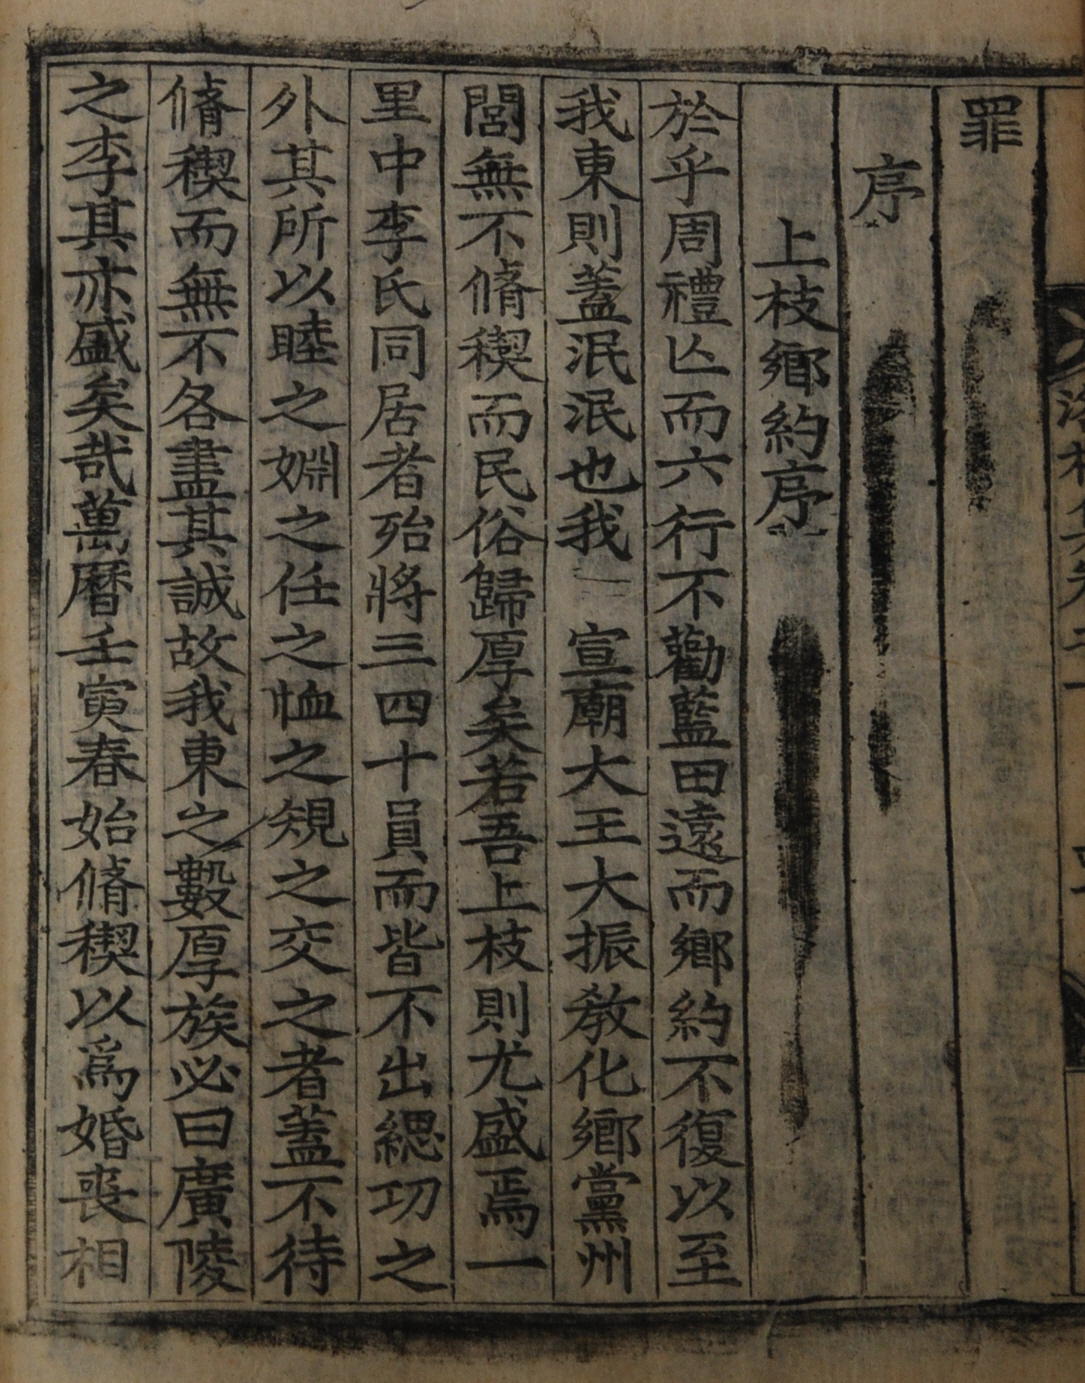 罪
序
上枝鄕約序
於乎周禮亾而六行不勸藍田遠而鄕約不復以至
我東則蓋泯泯也我 宣廟大王大振敎化鄕黨州
閭無不脩稧而民俗歸厚矣若吾上枝則尤盛焉一
里中李氏同居者殆將三四十員而皆不出緦功之
外其所以睦之婣之任之恤之規之交之者蓋不待
脩稧而無不各盡其誠故我東之數厚族必曰廣陵
之李其亦盛矣哉萬曆壬寅春始脩稧以爲婚喪相